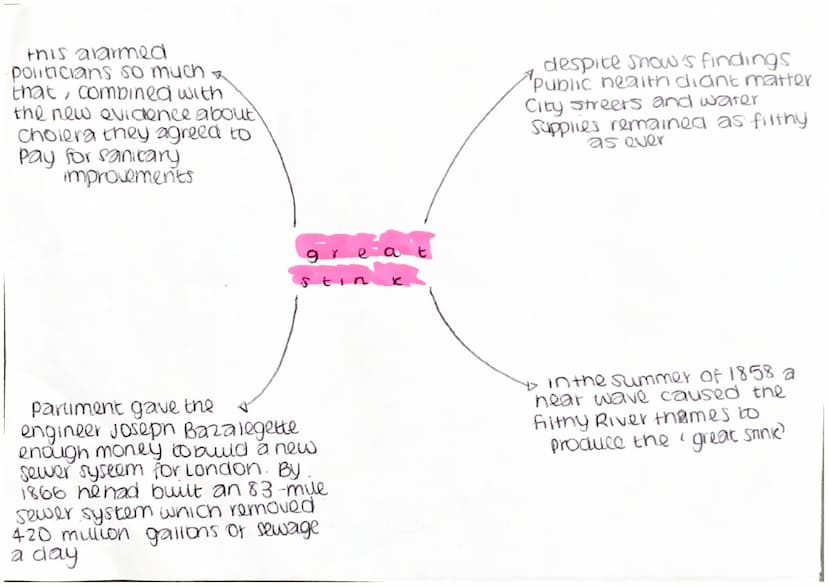 this alarmed
politicians so much
that, combined with
the new evidence about
cholera they agreed to
pay for sanitary
improvements
despite snow's findings
Public health didnt matter
City streets and water
supplies remained as filthy
as ever
great
stink
Parliment gave the
engineer Joseph Bazalegette
enough money to build a new
sewer system for London. By
1866 he had built an 83-mile
sewer system which removed
420 million gallons of sewage
a day
in the summer of 1858 a
heat wave caused the
filthy River thames to
produce the 'great stink'